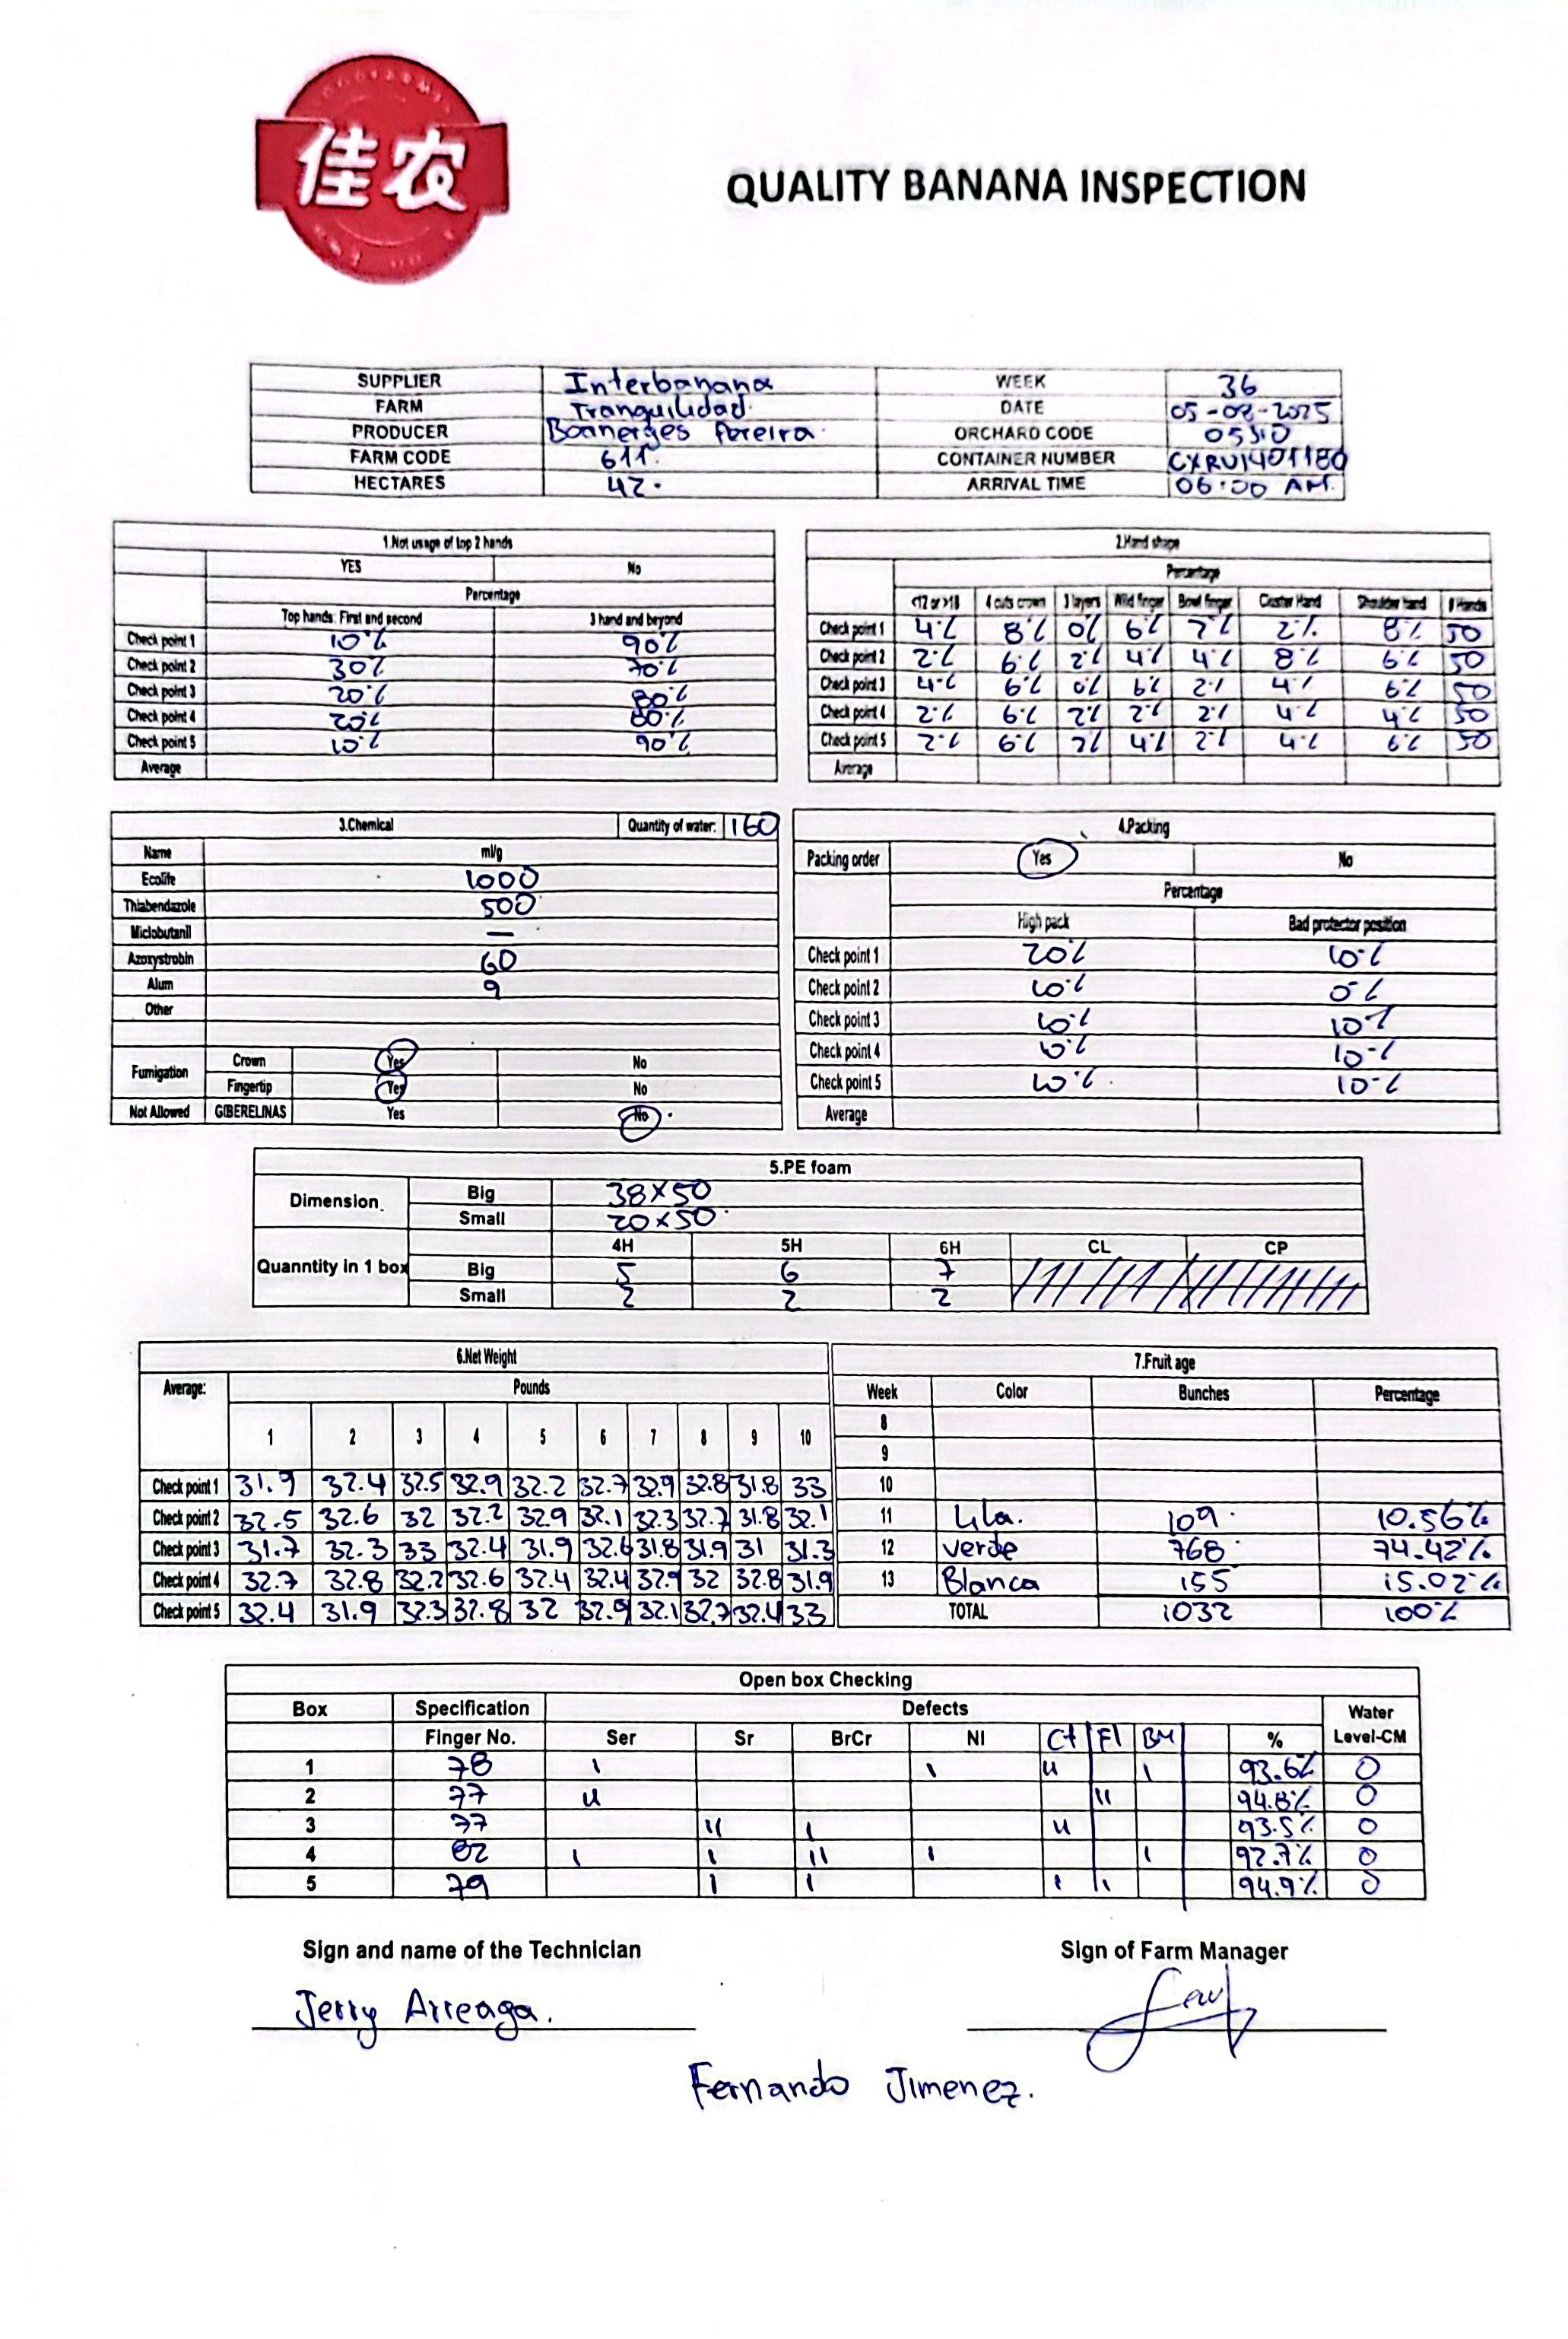 佳农
QUALITY BANANA INSPECTION
SUPPLIER Interbanana WEEK 36
FARM Tranquilidad. DATE 05-09-2025
PRODUCER Boanerges Pereira. ORCHARD CODE
FARM CODE 611. CONTAINER NUMBER CXRU1401180
HECTARES 42. ARRIVAL TIME 06:00 AM.
1.Not usage of top 2 hands
YES No
Percentage
Top hands: First and second 3 hand and beyond
Check point 1 10% 90%
Check point 2 30% 70%
Check point 3 20% 80%
Check point 4 20% 80%
Check point 5 10% 90%
Average
2.Hand shape
Percentage
<12 or >18 4 cuts crown 3 layers Wild finger Bowl finger Cluster Hand Shoulder hand # Hands
Check point 1 4% 8% 0% 6% 2% 2% 8% 50
Check point 2 2% 6% 2% 4% 4% 8% 6% 50
Check point 3 4% 6% 0% 6% 2% 4% 6% 50
Check point 4 2% 6% 2% 2% 2% 4% 4% 50
Check point 5 2% 6% 2% 4% 2% 4% 6% 50
Average
3.Chemical Quantity of water: 160
Name ml/g
Ecolife 1000
Thiabendazole 500
Miclobutanil —
Azoxystrobin 60
Alum 9
Other
Fumigation Crown Yes No
Fingertip Yes No
Not Allowed GIBERELINAS Yes No
4.Packing
Packing order Yes No
Percentage
High pack Bad protector position
Check point 1 20% 10%
Check point 2 10% 0%
Check point 3 10% 10%
Check point 4 10% 10%
Check point 5 10% 10%
Average
5.PE foam
Dimension Big 38x50
Small 20x50
4H 5H 6H CL CP
Quanntity in 1 box Big 5 6 7
Small 2 2 2
6.Net Weight
Average: Pounds
1 2 3 4 5 6 7 8 9 10
Check point 1 31.9 32.4 32.5 32.9 32.2 32.7 32.9 32.8 31.8 33
Check point 2 32.5 32.6 32 32.2 32.9 32.1 32.3 32.7 31.8 32.1
Check point 3 31.7 32.3 33 32.4 31.9 32.6 31.8 31.9 31 31.3
Check point 4 32.7 32.8 32.2 32.6 32.4 32.4 32.9 32 32.8 31.9
Check point 5 32.4 31.9 32.3 32.8 32 32.9 32.1 32.7 32.4 33
7.Fruit age
Week Color Bunches Percentage
8
9
10
11 Lila. 109 10.56%
12 Verde 768 74.42%
13 Blanca 155 15.02%
TOTAL 1032 100%
Open box Checking
Box Specification Defects Water
Finger No. Ser Sr BrCr NI Ct Fl BM % Level-CM
1 78 I I II I 93.6% 0
2 77 II II 94.8% 0
3 77 II I II 93.5% 0
4 82 I I II I I 92.7% 0
5 79 I I I I 94.9% 0
Sign and name of the Technician Sign of Farm Manager
Jerry Arreaga.
Fernando Jimenez.